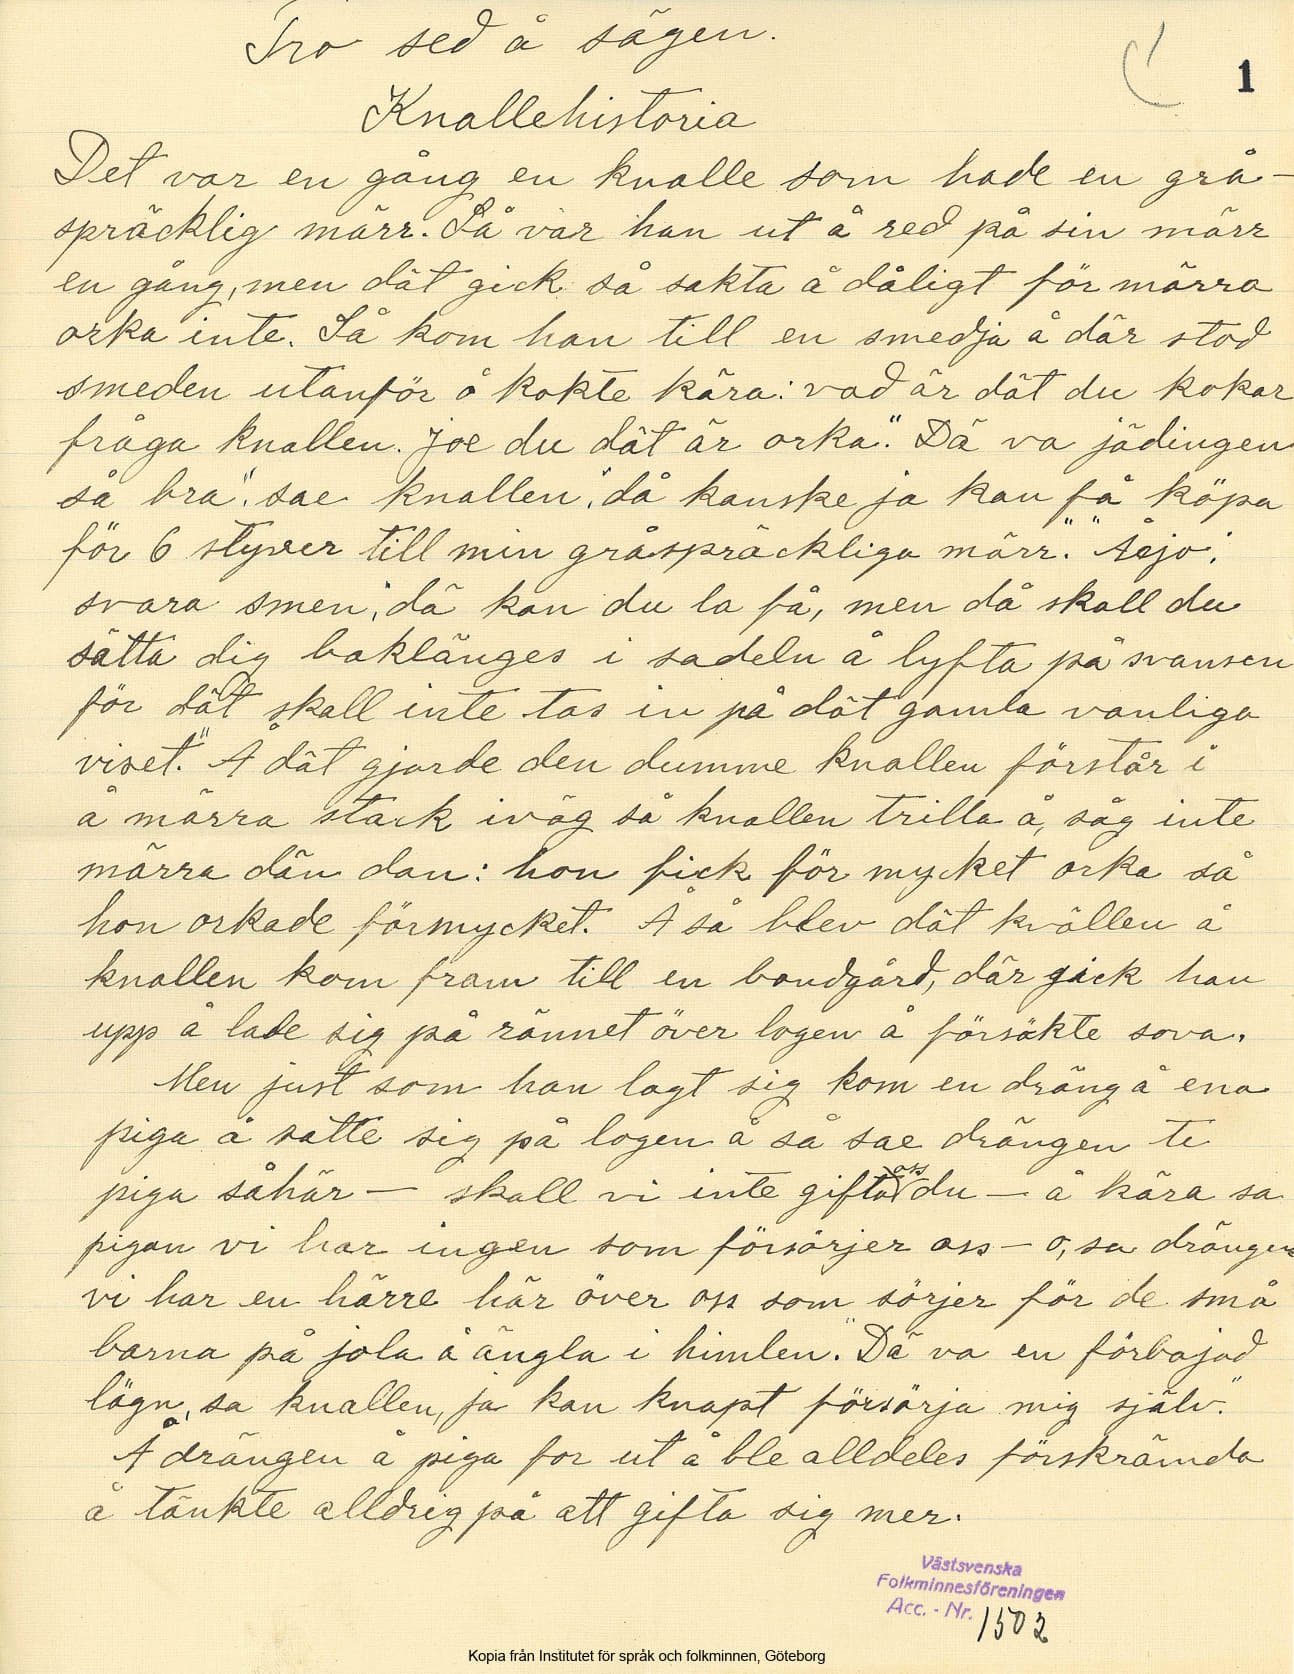 Tro sed å sägen.
1
Knallehistoria
Det var en gång en knalle som hade en grå-
spräcklig märr. Så var han ut å red på sin märr
en gång, men dät gick så sakta å dåligt för märra
orka inte. Så kom han till en smedja å där stod
smeden utanför å kokte kära: vad är dät du kokar
fråga knallen. Joe du dät är orka". Dä va jädingen
så bra", sae knallen, "då kanske ja kan få köpa
för 6 styver till min gråspräckliga märr." "Åejo",
svara smen, "dä kan du la få, men då skall du
sätta dig baklänges i sadeln å lyfta på svansen
för dät skall inte tas in på dät gamla vanliga
viset." Å dät gjorde den dumme knallen förstår i
å märra stack iväg så knallen trilla å, såg inte
märra dän dan: hon fick för mycket orka så
hon orkade förmycket. Å så blev dät kvällen å
knallen kom fram till en bondgård, där gick han
upp å lade sig på rännet över logen å försökte sova.
Men just som han lagt sig kom en dräng å ena
piga å satte sig på logen å så sae drängen te
piga såhär — skall vi inte gifta oss du — å kära sa
pigan vi har ingen som försörjer oss — o, sa drängen
vi har en härre här över oss som sörjer för de små
barna på jola å ängla i himlen." Dä va en förbajad
lögn, sa knallen, ja kan knapt försörja mig själv."
Å drängen å piga for ut å ble alldeles förskrämda
å tänkte alldrig på att gifta sig mer.
Västsvenska
Folkminnesföreningen
Acc. - Nr. 1502
Kopia från Institutet för språk och folkminnen, Göteborg